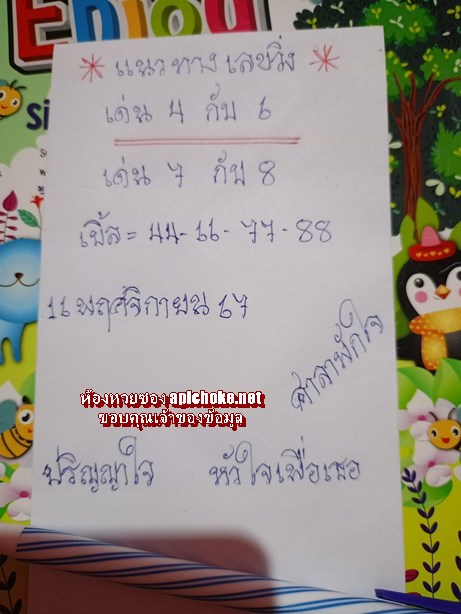 Enjoy
Si
* แนวทางเลขวิ่ง *
เด่น 4 กับ 6
เด่น 7 กับ 8
เบิ้ล = 44-66-77-88
16 พฤศจิกายน 67
ศาลาพักใจ
ห้องหวยซอง apichoke.net
ขอบคุณเจ้าของข้อมูล
ปริญญาใจ หัวใจเพื่อเธอ